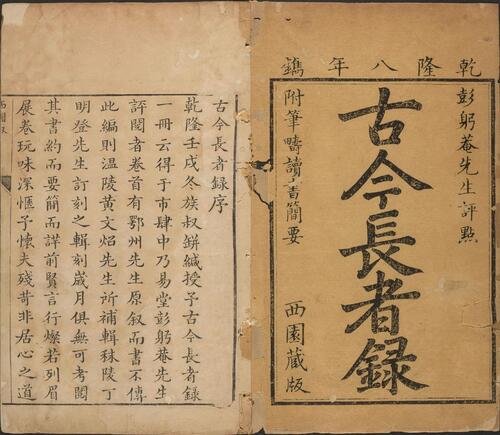 乾隆八年鐫
彭躬菴先生評點
古今長者錄
附筆疇讀書簡要
西園藏版
古今長者錄序
乾隆壬戌冬族叔緘授予古今長者錄
一冊云得于市肆中乃易堂彭躬菴先生
評閱者卷首有鄂州先生原叙而書不傳
此編則温陵黃文炤先生所補輯秣陵丁
明登先生訂刻之輯刻歲月俱無可考閱
其書約而要簡而詳前賢言行燦若列眉
展卷玩味深愜予懷夫殘苛非居心之道